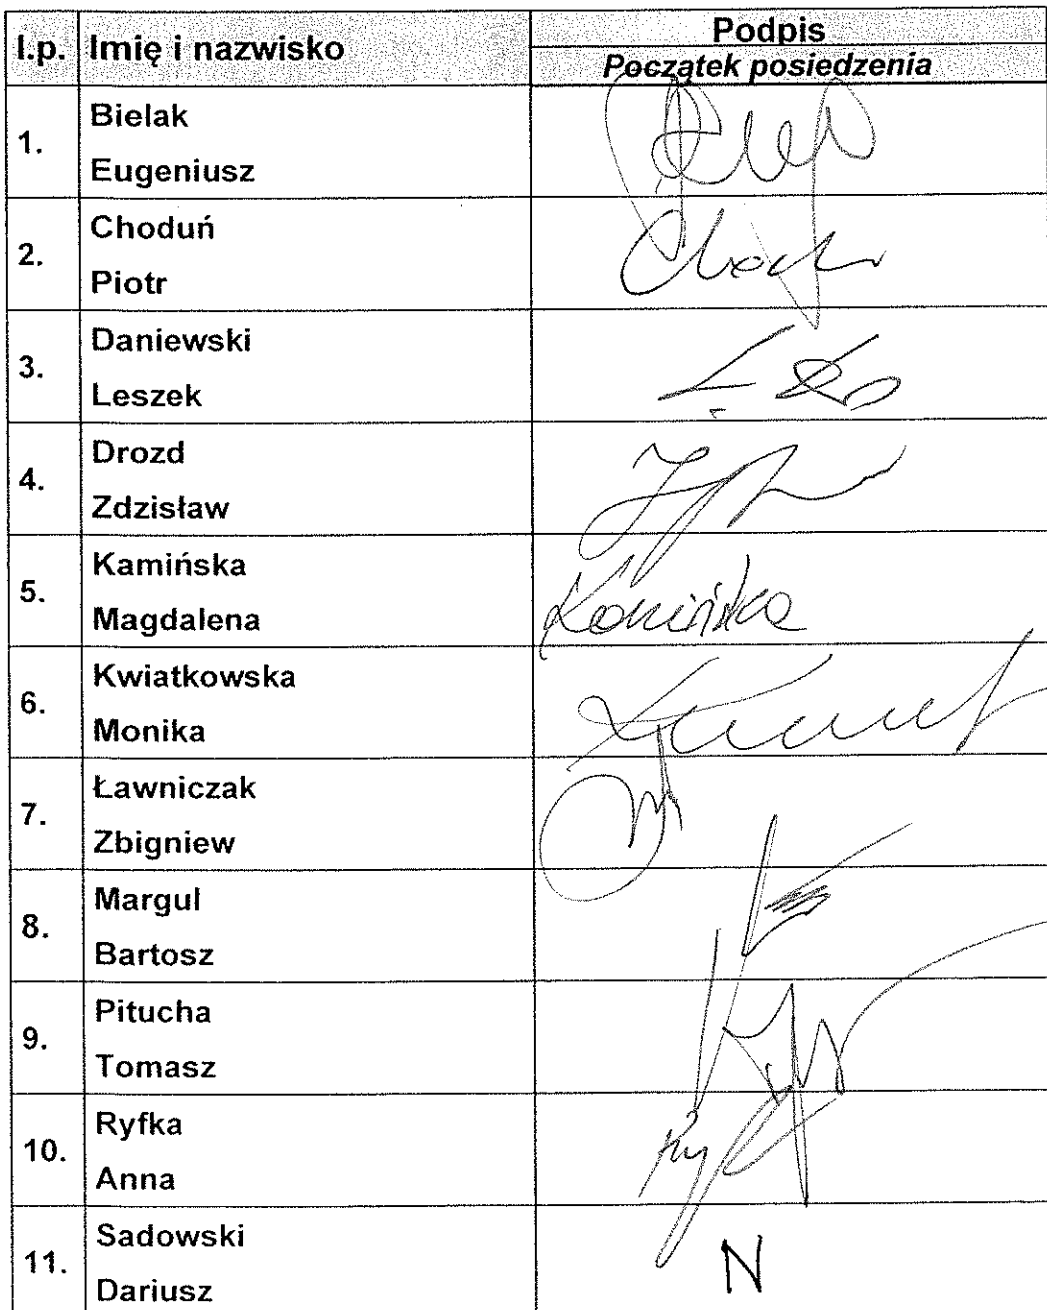 l.p. Imię i nazwisko Podpis
Początek posiedzenia
1. Bielak
Eugeniusz
2. Choduń
Piotr
3. Daniewski
Leszek
4. Drozd
Zdzisław
5. Kamińska
Magdalena
Kamińska
6. Kwiatkowska
Monika
7. Ławniczak
Zbigniew
8. Margul
Bartosz
9. Pitucha
Tomasz
10. Ryfka
Anna
11. Sadowski
Dariusz
N